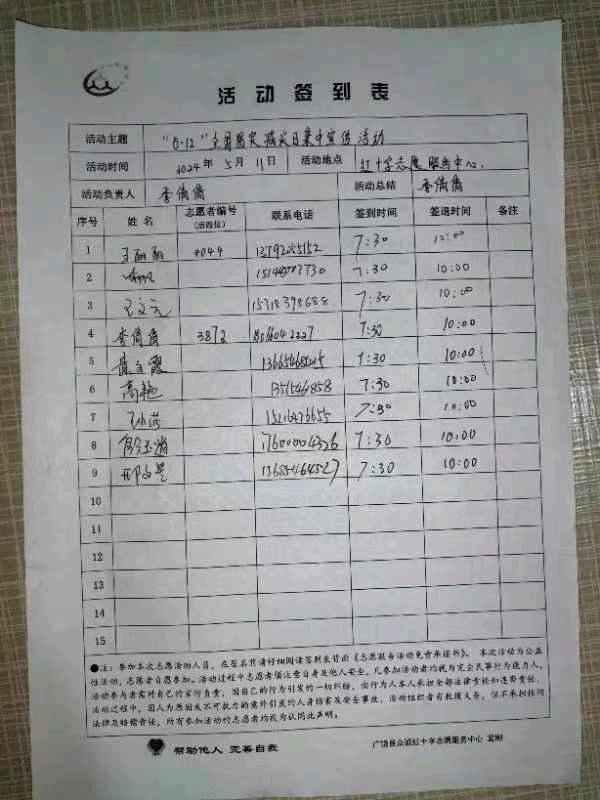 活动签到表
活动主题 "5·12"全国防灾减灾日集中宣传活动
活动时间 2024年5月11日 活动地点 红十字志愿服务中心.
活动负责人 李倩倩 活动总结 李倩倩
序号 姓名 志愿者编号 (后四位) 联系电话 签到时间 签退时间 备注
1 王丽丽 4044 13792055152 7:30 10:00
2 7:30 10:00
3 王文元 15718398688 7:30 10:00
4 李倩倩 3872 7:30 10:00
5 7:30 10:00
6 高艳 7:30 10:00
7 7:30 10:00
8 17600004326 7:30 10:00
9 13685464527 7:30 10:00
10
11
12
13
14
15
●注：参加本次志愿活动人员，在签名其请仔细阅读签到表背面《志愿服务活动免责承诺书》。本次活动为公益
性活动，志愿者自愿参加。活动过程中志愿者须注意自身及他人安全，凡参加活动者均视为完全民事行为能力人，
活动参与者需对自己的言行负责，因自己的行为引发的一切纠纷，由行为人本人承担全部法律责任和连带责任。
活动过程中，因人为原因及不可抗力的意外引发的人身伤害及安全事故，活动组织者有救援义务，但不承担任何
法律及赔偿责任，所有参加活动的志愿者均视为认同此声明。
帮助他人 完善自我 广饶县众诚红十字志愿服务中心 监制